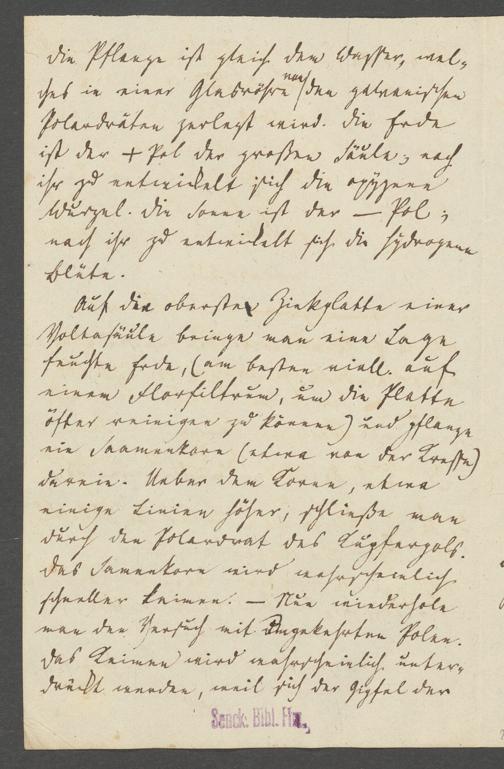 die Pflanze ist gleich dem Wasser, wel-
ches in einer Glasröhre von den galvanischen
Polardräten zerlegt wird. die Erde
ist der + Pol der großen Säule; nach
ihr zu entwickelt sich die oxygene
Wurzel. die Sonne ist der — Pol;
nach ihr zu entwickelt sich die hydrogene
Blüte.
Auf die oberste Zinkplatte einer
Voltasäule bringe man eine Lage
feuchte Erde, (am besten viell. auf
einem Florfiltrum, um die Platte
öfter reinigen zu können) und pflanze
ein Saamenkorn (etwa von der Kresse)
darein. Ueber dem Korne, etwa
einige Linien höher, schließe man
durch den Polardrat des Kupferpols.
das Samenkorn wird wahrscheinlich
schneller keimen. — Nun wiederhole
man den Versuch mit umgekehrten Polen.
das Keimen wird wahrscheinlich unter-
drückt werden, weil sich der Gipfel der
Senck. Bibl. Ffm.